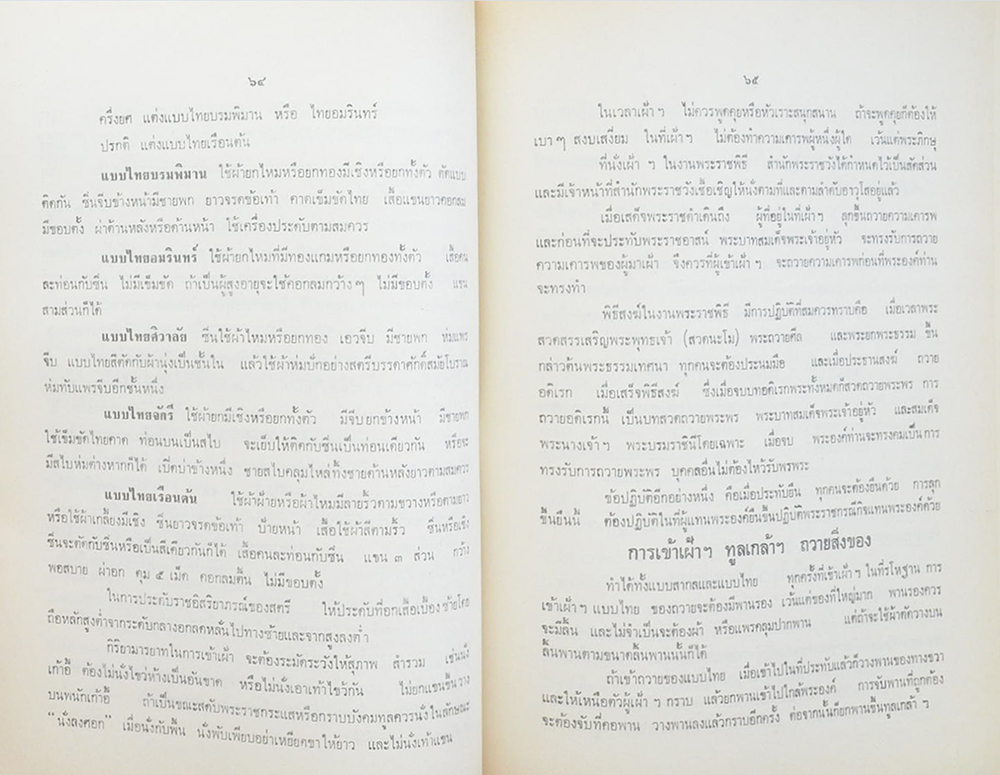 ๖๔
ครึ่งยศ แต่งแบบไทยบรมพิมาน หรือ ไทยอมรินทร์
ปรกติ แต่งแบบไทยเรือนต้น
แบบไทยบรมพิมาน ใช้ผ้ายกไหมหรือยกทองมีเชิงหรือยกทั้งตัว ตัดแบบ
ติดกัน ซิ่นจีบข้างหน้ามีชายพก ยาวจรดข้อเท้า คาดเข็มขัดไทย เสื้อแขนยาวคอกลม
มีขอบตั้ง ผ่าด้านหลังหรือด้านหน้า ใช้เครื่องประดับตามสมควร
แบบไทยอมรินทร์ ใช้ผ้ายกไหมที่มีทองแกมหรือยกทองทั้งตัว เสื้อคน
ละท่อนกับซิ่น ไม่มีเข็มขัด ถ้าเป็นผู้สูงอายุจะใช้คอกลมกว้าง ๆ ไม่มีขอบตั้ง แขน
สามส่วนก็ได้
แบบไทยศิวาลัย ซิ่นใช้ผ้าไหมหรือยกทอง เอวจีบ มีชายพก ห่มแพร
จีบ แบบไทยสีตัดกับผ้านุ่งเป็นชั้นใน แล้วใช้ผ้าห่มปักอย่างสตรีบรรดาศักดิ์สมัยโบราณ
ห่มทับแพรจีบอีกชั้นหนึ่ง
แบบไทยจักรี ใช้ผ้ายกมีเชิงหรือยกทั้งตัว มีจีบยกข้างหน้า มีชายพก
ใช้เข็มขัดไทยคาด ท่อนบนเป็นสไบ จะเย็บให้ติดกับซิ่นเป็นท่อนเดียวกัน หรือจะ
มีสไบห่มต่างหากก็ได้ เปิดบ่าข้างหนึ่ง ชายสไบคลุมไหล่ทิ้งชายด้านหลังยาวตามสมควร
แบบไทยเรือนต้น ใช้ผ้าฝ้ายหรือผ้าไหมมีลายริ้วตามขวางหรือตามยาว
หรือใช้ผ้าเกลี้ยงมีเชิง ซิ่นยาวจรดข้อเท้า ป้ายหน้า เสื้อใช้ผ้าสีตามริ้ว ซิ่นหรือเชิง
ซิ่นจะตัดกับซิ่นหรือเป็นสีเดียวกันก็ได้ เสื้อคนละท่อนกับซิ่น แขน ๓ ส่วน กว้าง
พอสบาย ผ่าอก ดุม ๕ เม็ด คอกลมตื้น ไม่มีขอบตั้ง
ในการประดับราชอิสริยาภรณ์ของสตรี ให้ประดับที่อกเสื้อเบื้องซ้ายโดย
ถือหลักสูงต่ำจากระดับกลางอกลดหลั่นไปทางซ้ายและจากสูงลงต่ำ
กิริยามารยาทในการเข้าเฝ้า จะต้องระมัดระวังให้สุภาพ สำรวม เช่นนั่ง
เก้าอี้ ต้องไม่นั่งไขว่ห้างเป็นอันขาด หรือไม่นั่งเอาเท้าไขว้กัน ไม่ยกแขนขึ้นวาง
บนพนักเก้าอี้ ถ้าเป็นขณะสดับพระราชกระแสหรือกราบบังคมทูลควรนั่งในลักษณะ
“นั่งลงศอก” เมื่อนั่งกับพื้น นั่งพับเพียบอย่าเหยียดขาให้ยาว และไม่นั่งเท้าแขน
๖๕
ในเวลาเฝ้า ฯ ไม่ควรพูดคุยหรือหัวเราะสนุกสนาน ถ้าจะพูดคุยก็ต้องให้
เบา ๆ สงบเสงี่ยม ในที่เฝ้า ฯ ไม่ต้องทำความเคารพผู้หนึ่งผู้ใด เว้นแต่พระภิกษุ
ที่นั่งเฝ้า ฯ ในงานพระราชพิธี สำนักพระราชวังได้กำหนดไว้เป็นสัดส่วน
และมีเจ้าหน้าที่สำนักพระราชวังเชื้อเชิญให้นั่งตามที่และตามลำดับอาวุโสอยู่แล้ว
เมื่อเสด็จพระราชดำเนินถึง ผู้ที่อยู่ในที่เฝ้า ฯ ลุกขึ้นถวายความเคารพ
และก่อนที่จะประทับพระราชอาสน์ พระบาทสมเด็จพระเจ้าอยู่หัว จะทรงรับการถวาย
ความเคารพของผู้มาเฝ้า จึงควรที่ผู้เข้าเฝ้า ฯ จะถวายความเคารพก่อนที่พระองค์ท่าน
จะทรงทำ
พิธีสงฆ์ในงานพระราชพิธี มีการปฏิบัติที่สมควรทราบคือ เมื่อเวลาพระ
สวดสรรเสริญพระพุทธเจ้า (สวดนะโม) พระถวายศีล และพระยกพระธรรม ขึ้น
กล่าวต้นพระธรรมเทศนา ทุกคนจะต้องประนมมือ และเมื่อประธานสงฆ์ ถวาย
อดิเรก เมื่อเสร็จพิธีสงฆ์ ซึ่งเมื่อจบบทอดิเรกพระทั้งหมดก็สวดถวายพระพร การ
ถวายอดิเรกนี้ เป็นบทสวดถวายพระพร พระบาทสมเด็จพระเจ้าอยู่หัว และสมเด็จ
พระนางเจ้า ฯ พระบรมราชินีโดยเฉพาะ เมื่อจบ พระองค์ท่านจะทรงคมเป็นการ
ทรงรับการถวายพระพร บุคคลอื่นไม่ต้องไหว้รับพรพระ
ข้อปฏิบัติอีกอย่างหนึ่ง คือเมื่อประทับยืน ทุกคนจะต้องยืนด้วย การลุก
ขึ้นยืนนี้ ต้องปฏิบัติในที่ผู้แทนพระองค์ยืนขึ้นปฏิบัติพระราชกรณีกิจแทนพระองค์ด้วย
การเข้าเฝ้าฯ ทูลเกล้าฯ ถวายสิ่งของ
ทำได้ทั้งแบบสากลและแบบไทย ทุกครั้งที่เข้าเฝ้า ฯ ในที่รโหฐาน การ
เข้าเฝ้า ฯ แบบไทย ของถวายจะต้องมีพานรอง เว้นแต่ของที่ใหญ่มาก พานรองควร
จะมีลิ้น และไม่จำเป็นจะต้องผ้า หรือแพรคลุมปากพาน แต่ถ้าจะใช้ผ้าตัดวางบน
ลิ้นพานตามขนาดลิ้นพานนั้นก็ได้
ถ้าเข้าถวายของแบบไทย เมื่อเข้าไปในที่ประทับแล้วก็วางพานของทางขวา
และให้เหนือตัวผู้เฝ้า ฯ กราบ แล้วยกพานเข้าไปใกล้พระองค์ การจับพานที่ถูกต้อง
จะต้องจับที่คอพาน วางพานลงแล้วกราบอีกครั้ง ต่อจากนั้นก็ยกพานขึ้นทูลเกล้า ฯ